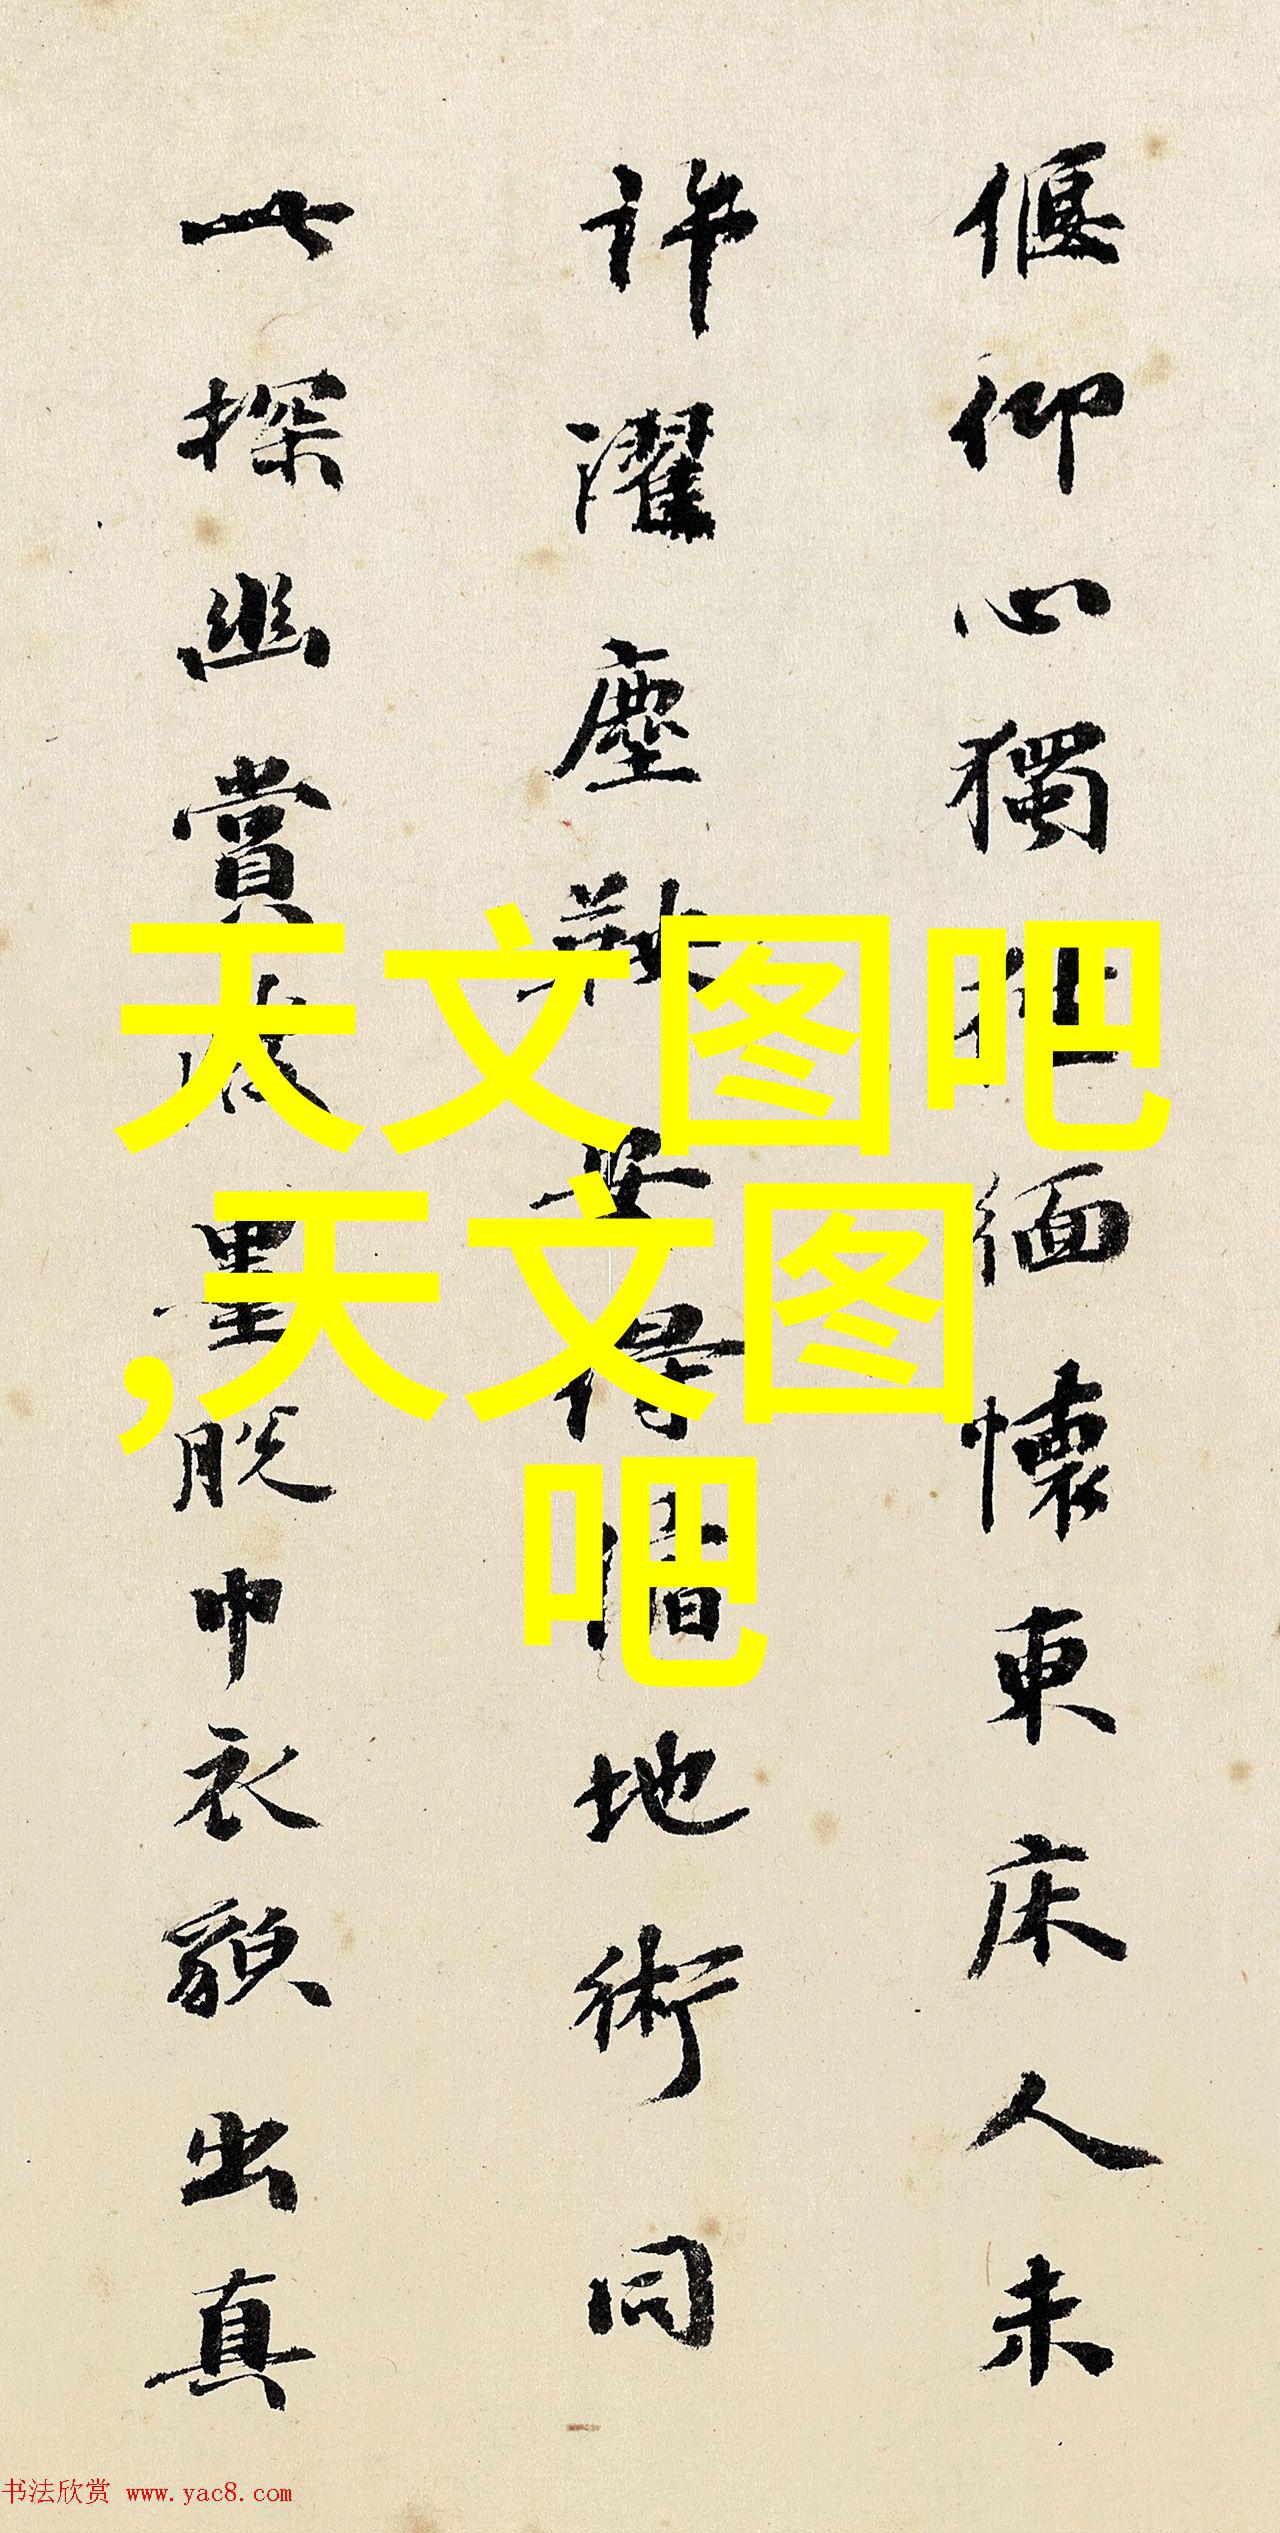 偃仰心獨
缅懷東床人未
許濯塵
地術同
一探幽賞
墨脱巾衣顏出真
天文图吧
,天文图
吧
书法欣赏 www.yac8.com